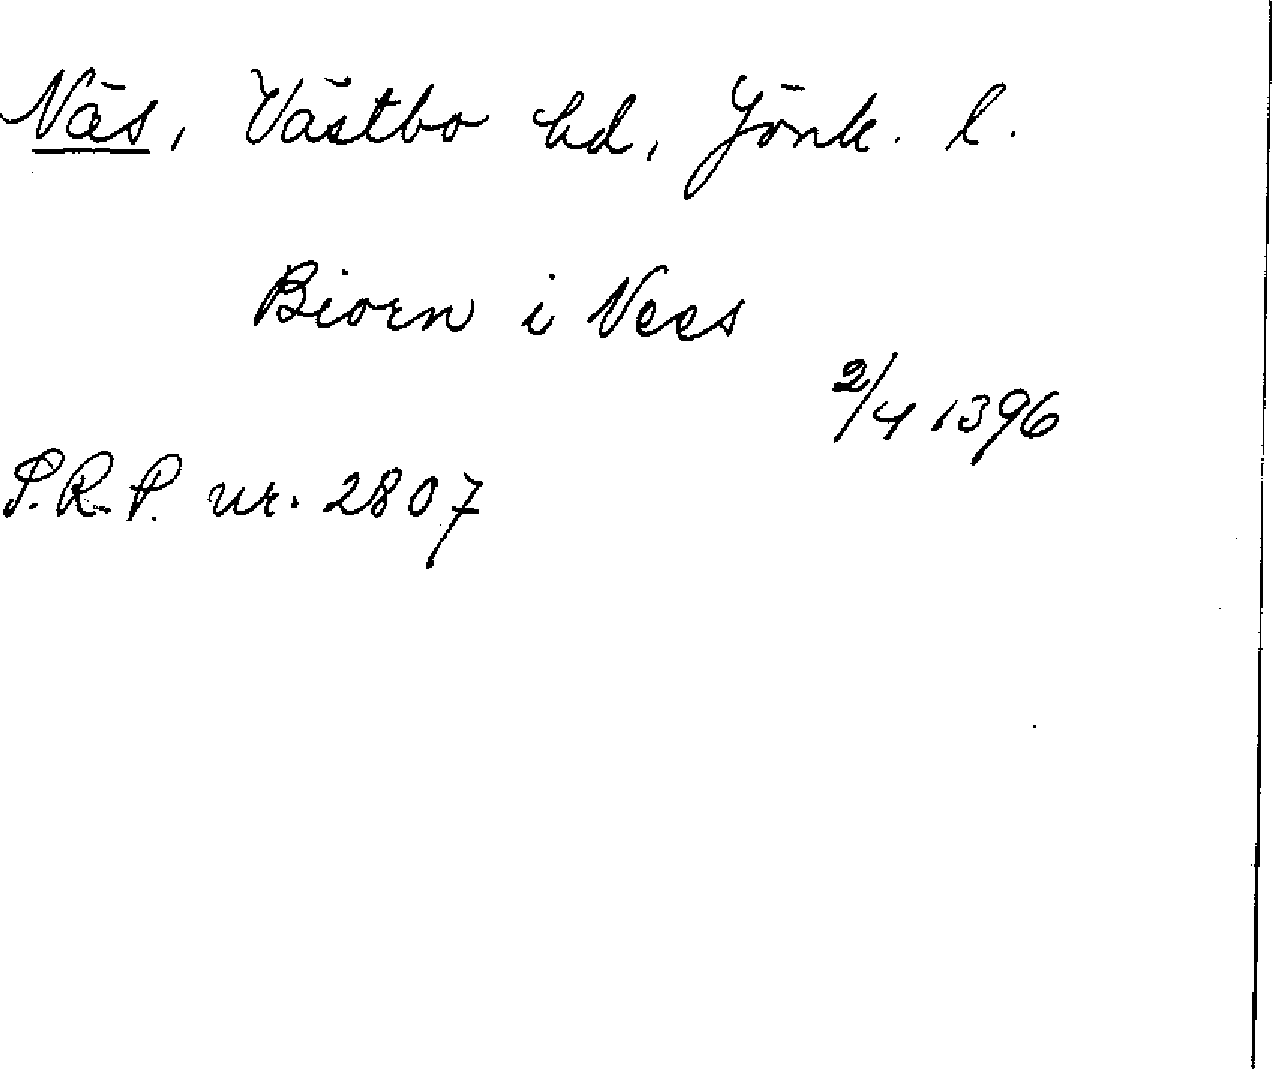 Näs, Västbo hd, Jönk. l.
Biorn i Nees
2/4 1396
S.R.P. nr. 2807